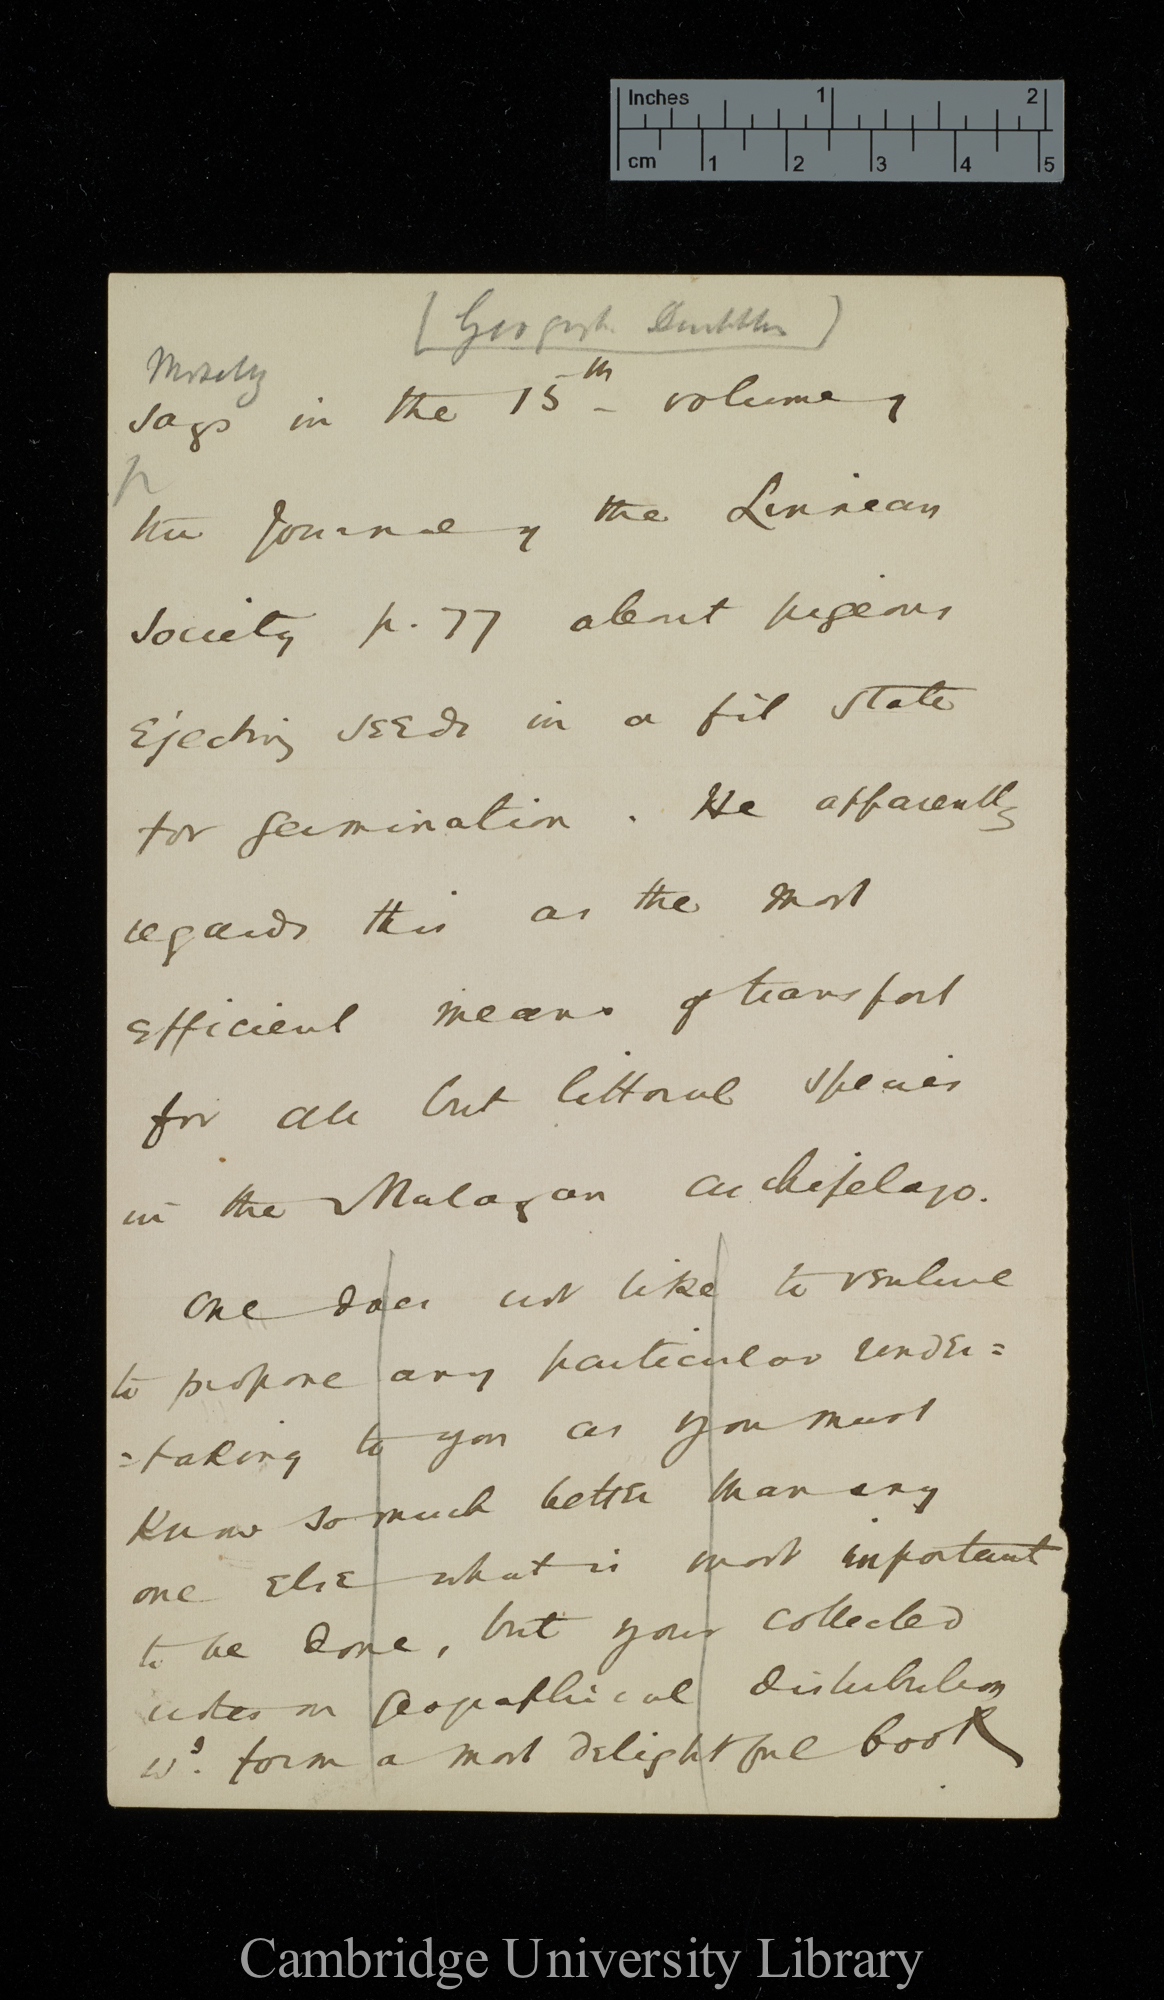 Inches 1 2
cm 1 2 3 4 5
(Geograph. Distrib)
Mosely
says in the 15th volume of
the Journal of the Linnean
Society p. 77 about pigeons
ejecting seeds in a fit state
for germination. He apparently
regards this as the most
efficient means of transport
for all but littoral species
in the Malayan archipelago.
One does not like to venture
to propose any particular under=
=taking to you as you must
know so much better than any
one else what is most important
to be done, but your collected
notes on geographical distribution
wd. form a most delightful book
Cambridge University Library